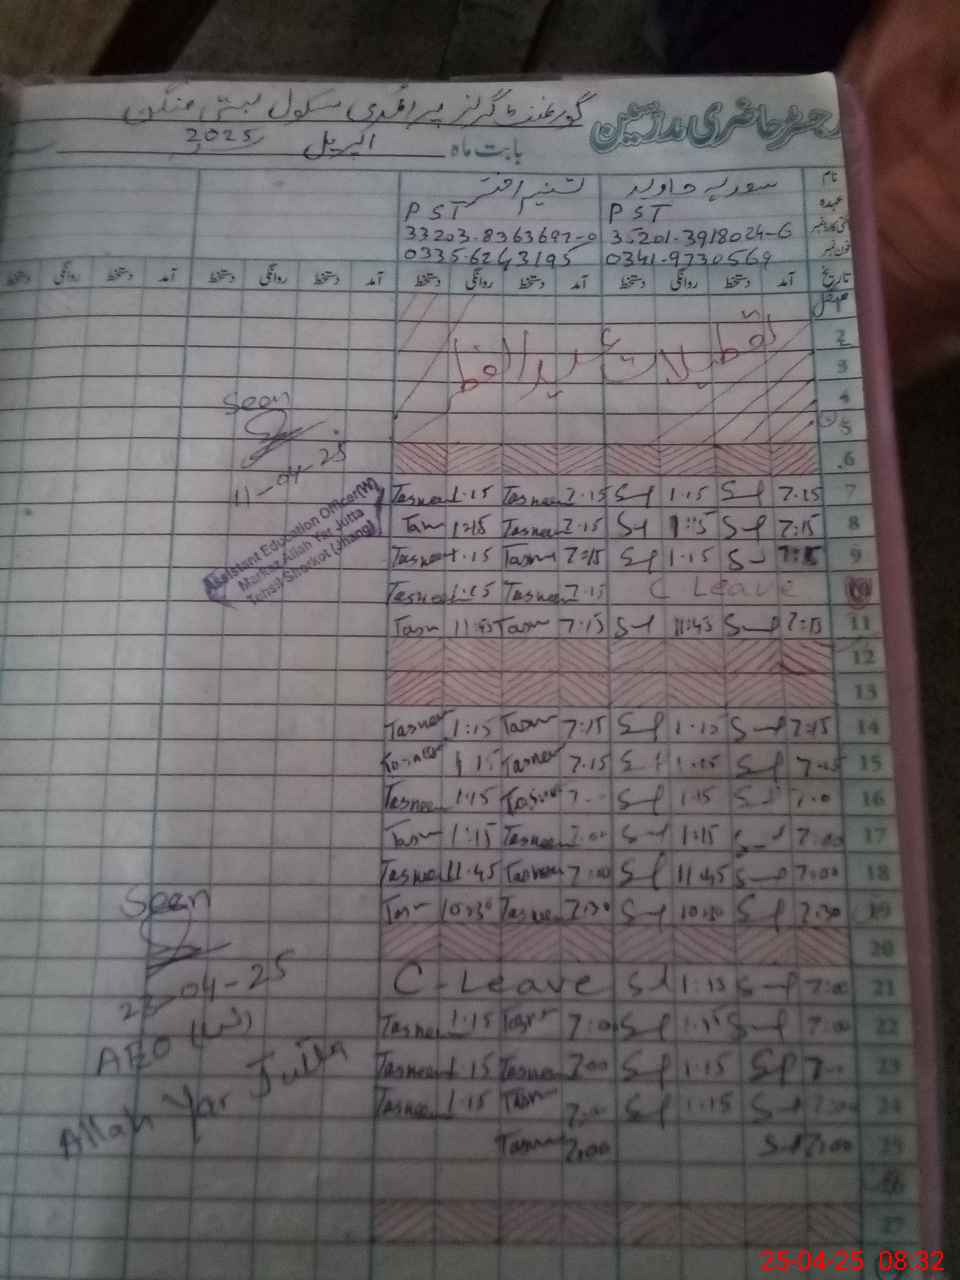 رجسٹر حاضری مدرسین
گورنمنٹ گرلز پرائمری سکول بستی
بابت ماہ اپریل 2025
نام تسنیم اختر سعدیہ جاوید
عہدہ PST PST
33203-8363692-0 35201-3918024-6
فون نمبر 0335-6243195 0341-9730569
تاریخ آمد دستخط روانگی دستخط آمد دستخط روانگی دستخط آمد دستخط روانگی دستخط آمد دستخط روانگی دستخط
2
تعطیلات عید الفطر
3
4
5
6
7 7.15 Sf 1.15 Sf 7.15 Tasneem 1.15 Tasneem
8 7:15 Sf 1:15 Sf 7.15 Tasneem 1:15 Tasn
9 7:15 S 1.15 Sf 7:15 Tasn 1.15 Tasneem
10 C Leave 7.15 Tasneem 1:15 Tasneem
11 7:15 Sf 11:45 Sf 7:15 Tasn 11:45 Tasn
12
13
14 7:15 Sf 1.15 Sf 7:15 Tasn 1:15 Tasneem
15 7.15 Sf 1:15 Sf 7.15 Tasneem 1.15 Tasneem
16 7.0 Sf 1:15 Sf Tasneem 1.15 Tasneem
17 7:00 Sf 1:15 Sf 7:00 Tasneem 1:15 Tasn
18 7:00 Sf 11:45 Sf 7:00 Tasneem 11.45 Tasneem
19 7:30 Sf 10:30 Sf 7:30 Tasneem 10:30 Tasn
20
21 7:00 Sf 1:15 Sf C-Leave
22 7:00 Sf 1:15 Sf 7:00 Tasn 1:15 Tasneem
23 7:00 Sf 1.15 Sf 7:00 Tasneem 1.15 Tasneem
24 7:00 Sf 1:15 Sf 7:00 Tasn 1.15 Tasneem
25 7:00 Sf 7:00 Tasneem
26
27
Seen
11-04-25
Assistant Education Officer(W)
Markaz Allah Yar Jutta
Tehsil Shorkot (Jhang)
Seen
23-04-25
AEO (W)
Allah Yar Jutta
25-04-25 08:32